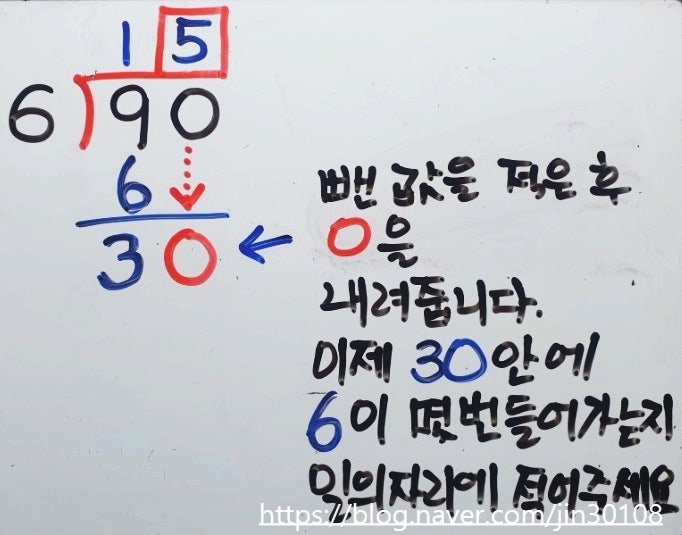 1 5
6 ) 9 0
6
3 0
뺀 값을 적은 후
0을
내려줍니다.
이제 30안에
6이 몇번들어가는지
일의자리에 적어주세요
https://blog.naver.com/jin30108